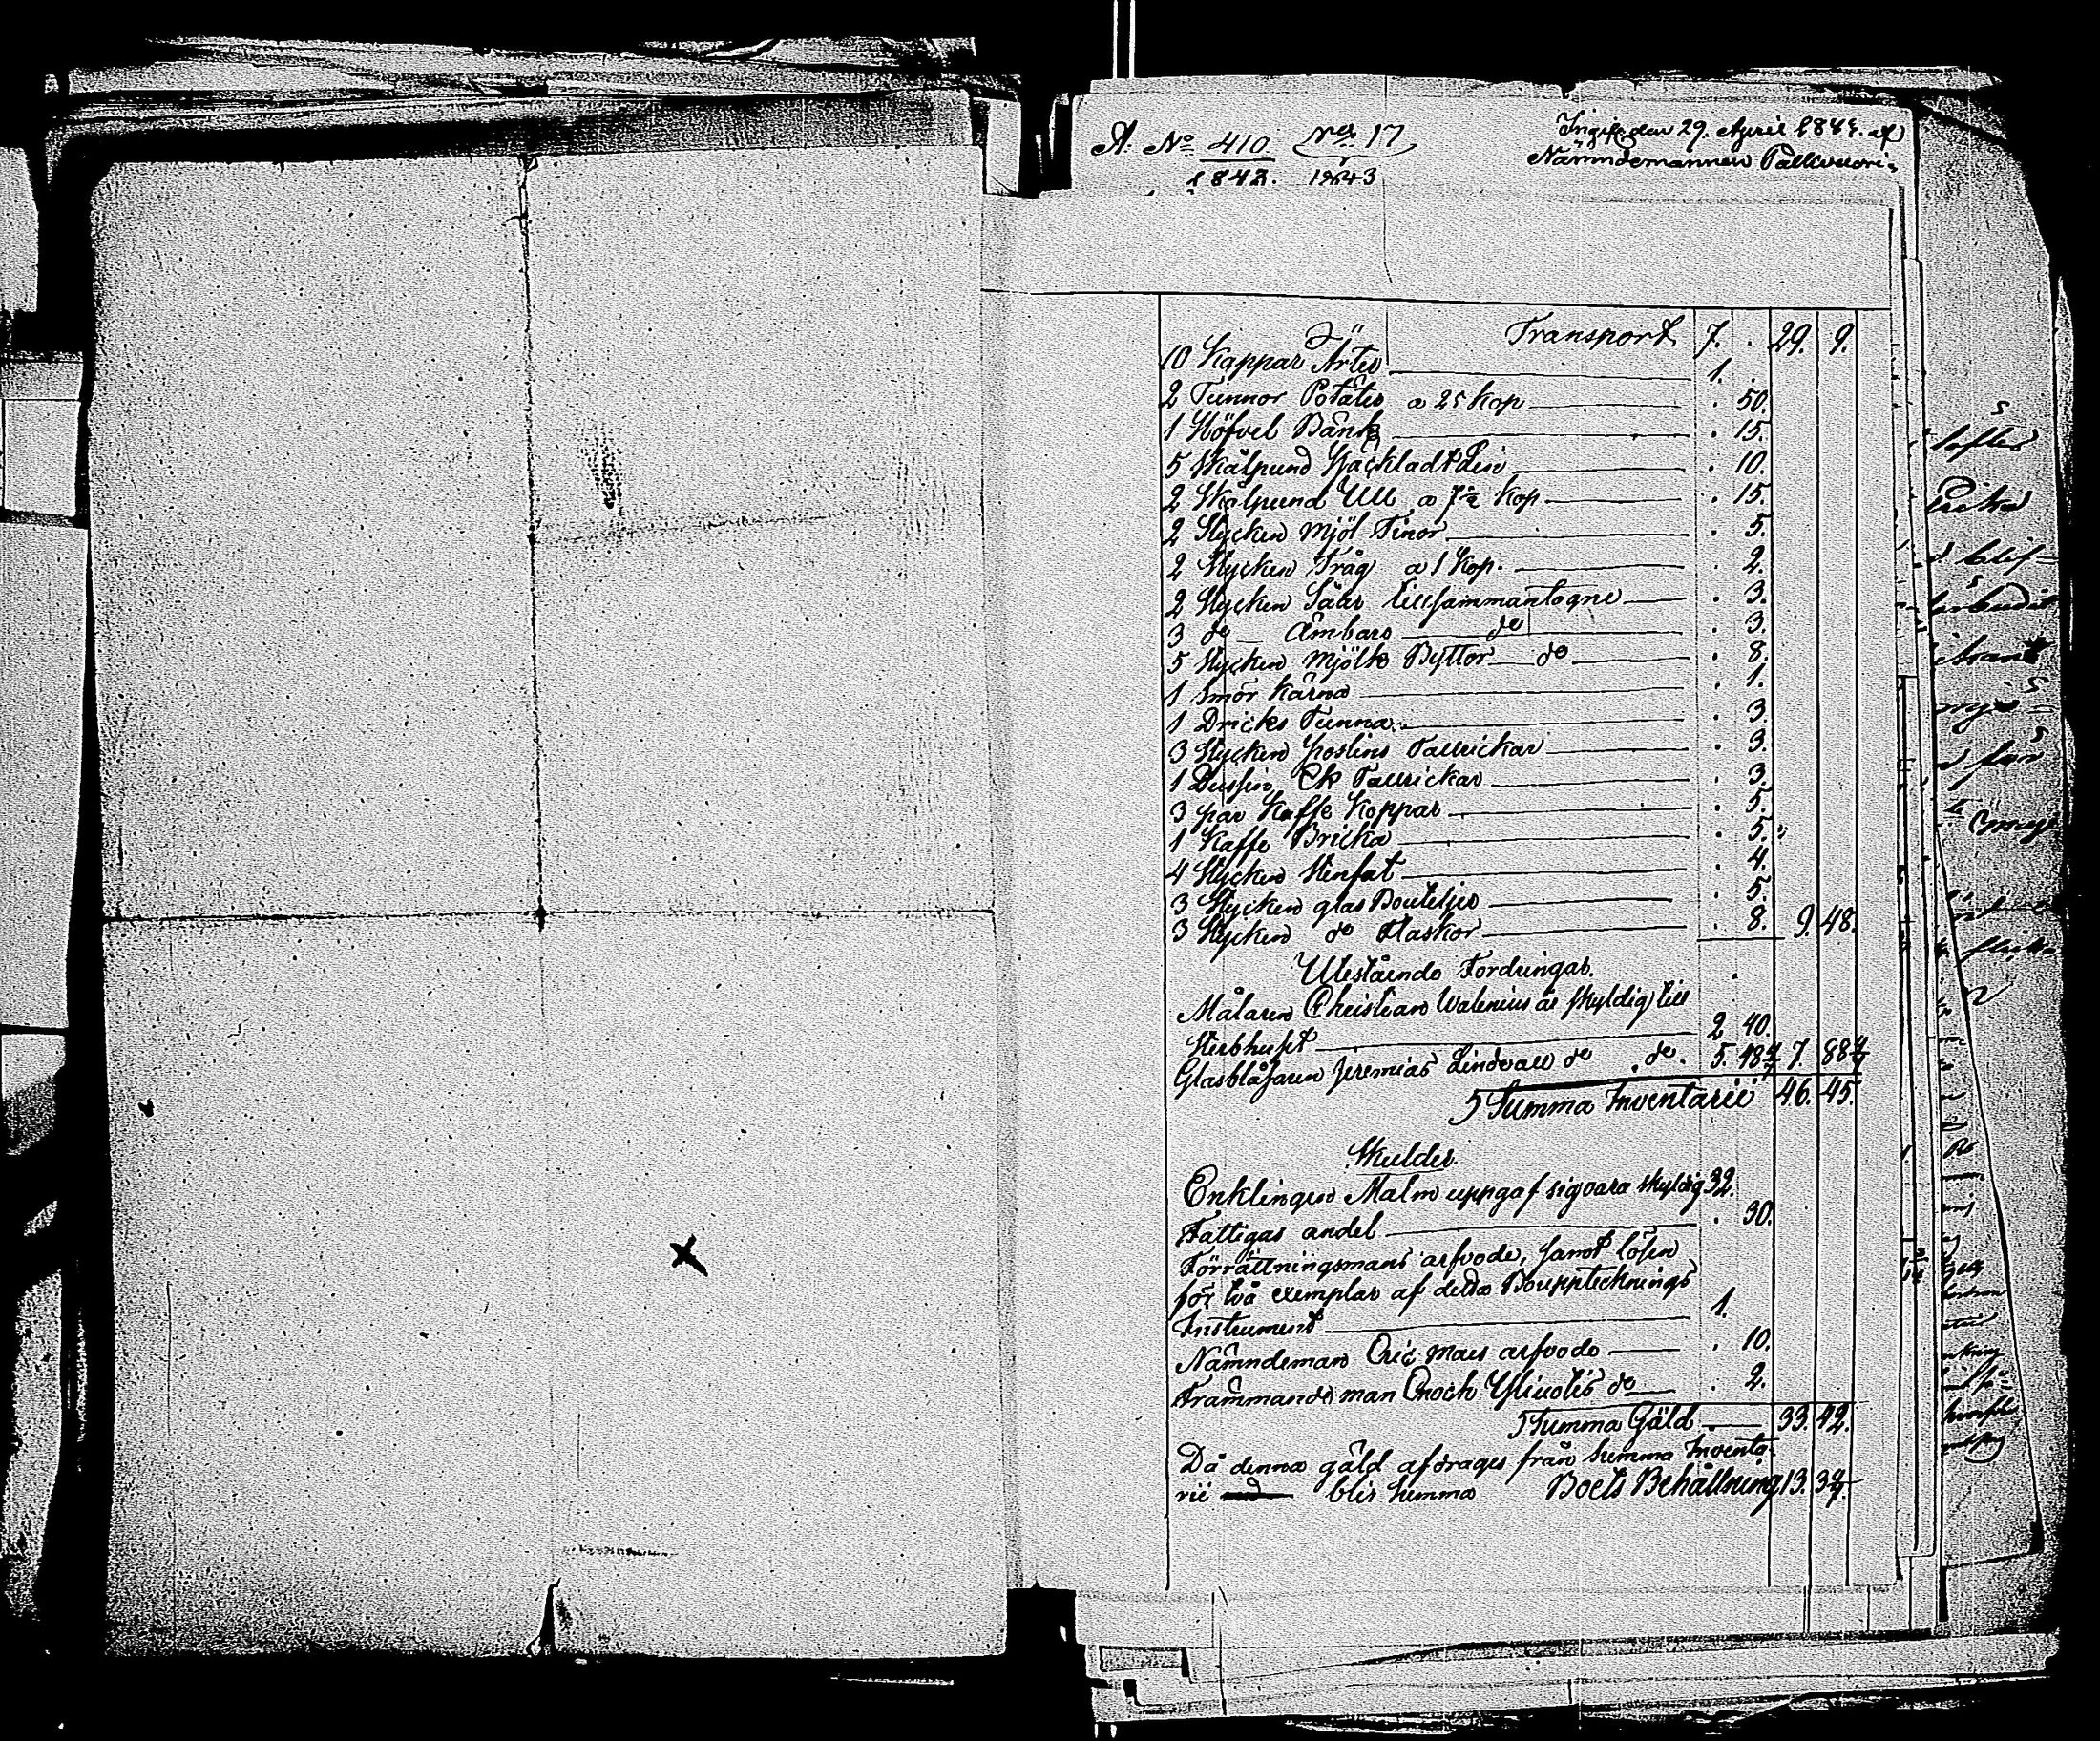 A. No 410 Nr 17
1842. 1843
Ingif. den 29. April 1844. af
Nämndemannen Palkvuori
Transport 7. . 29. 9.
10 Kappar Ärter 1. .
2 Tunnor Potäter a 25 kop . 50.
1 Höfvel Bänk . 15.
5 Skålpund Häckladt Lin . 10.
2 Skålpund Ull a 7½ kop . 15.
2 Stycken Mjöl Tinor . 5.
2 Stycken Tråg a 1 Kop. . 2.
2 Stycken Såar tillsammantagne . 3.
3 do Ämbare do . 3.
5 Stycken Mjölk Byttor do . 8.
1 Smör Kärna . 1.
1 Dricks Tunna . 3.
3 Stycken poslins Tallrickar . 3.
1 Dussin Ek Tallrickar . 3.
3 par Kaffe Koppar . 5.
1 Kaffe Bricka . 5.
4 Stycken Stenfat . 4.
3 Stycken glas Bouteljer . 5.
3 Stycken do Flaskor . 8. 9. 48.
Utestående Fordringar.
Målaren Christian Walenius är skyldig till
Sterbhuset 2 40.
Glasblåsaren Jeremias Lindvall do do. 5. 48 4/7 7 88 4/7
Summa Inventarii 46. 45.
Skulder.
Enklingen Malm uppgaf sig vara skyldig 32.
Fattigas andel . 30.
Förrättningsmans arfvode, samt lösen
för två exemplar af detta Boupptecknings
Instrument 1.
Nämndeman Eric Mats arfvode . 10.
Frammande man Enoch Yliuotis do . 2.
Summa Gäld 33. 42.
Då denna gäld afdrages från Summa Inventa-
rii blir Summa Boets Behållning 13. 3 4/7.